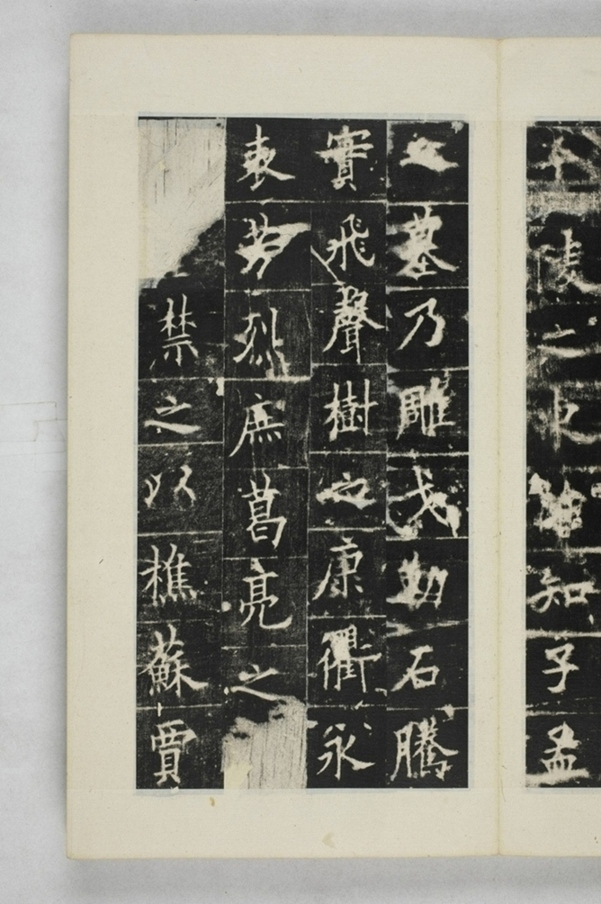 陵之皆知子孟
之墓乃雕戈勒石騰
實飛聲樹之康衢永
表芳烈庶葛亮之
禁之以樵蘇賈